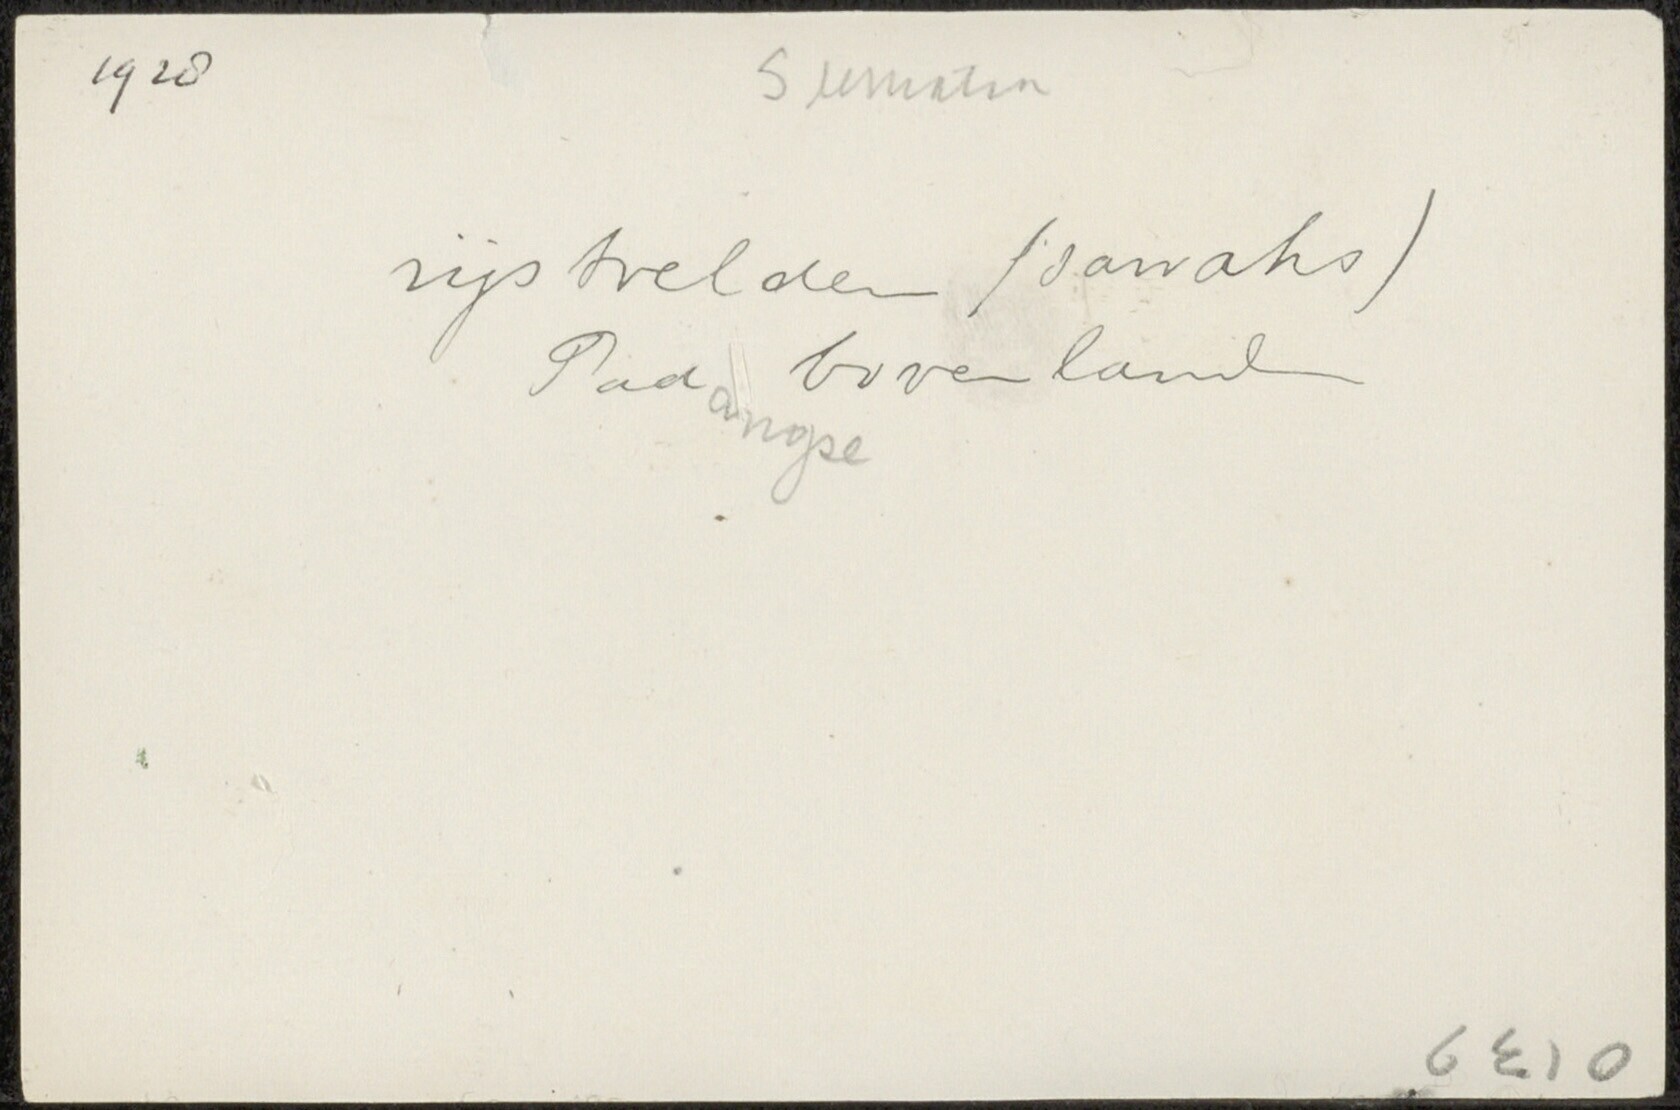 1928
Sumatra
rijstvelden (sawahs)
Padangse bovenlanden
0139